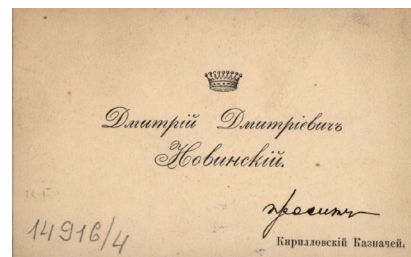 Дмитрій Дмитріевичъ
Новинскій.
проситъ
14916/4
Кирилловскій Казначей.